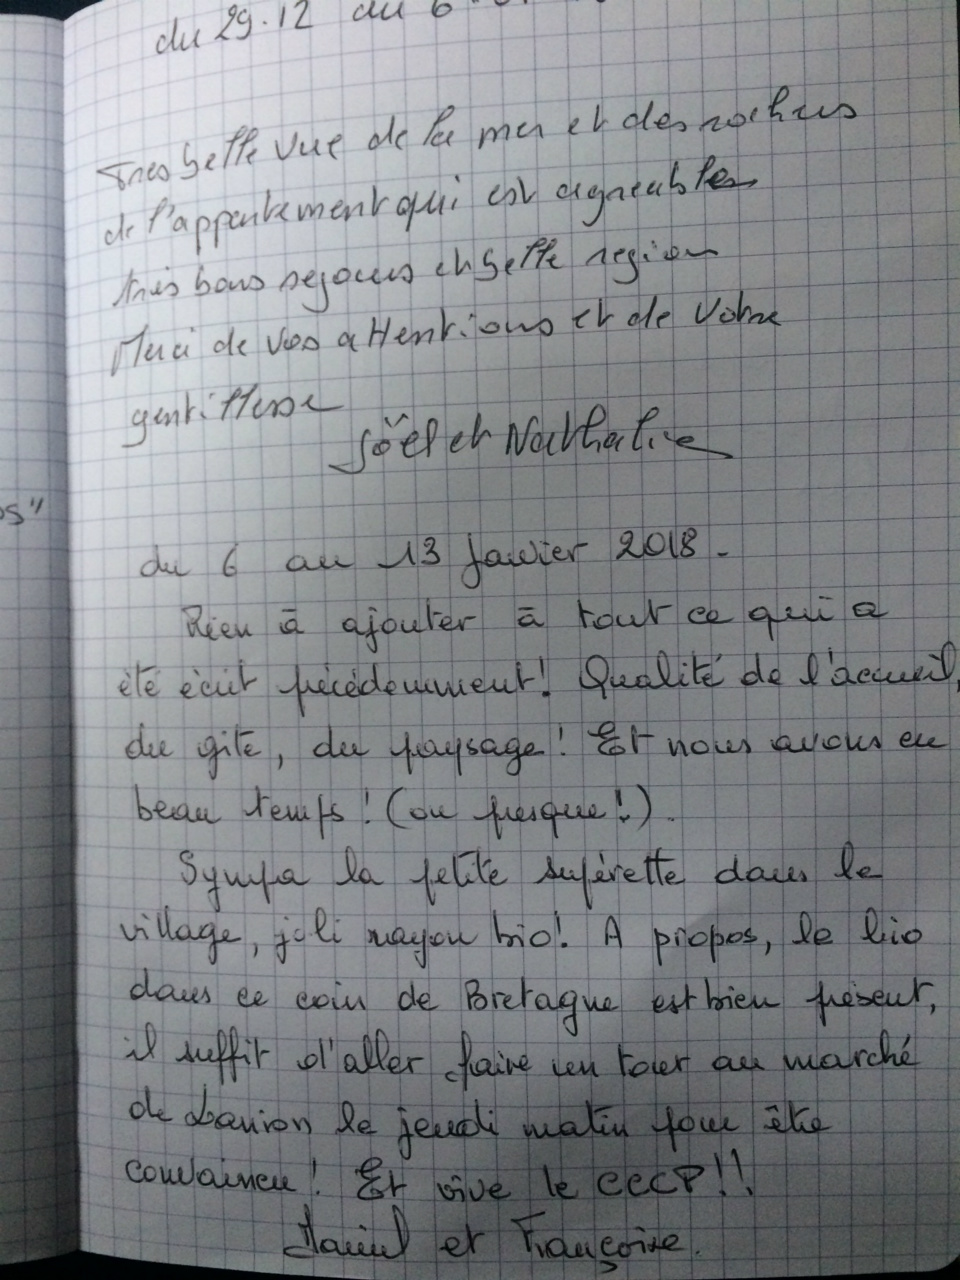 du 29.12 au 6
Tres belle vue de la mer et des rochers
de l'appartement qui est agreables
très bons sejours en belle region
Merci de vos attentions et de votre
gentillesse
Joël et Nathalie
os"
du 6 au 13 janvier 2018 -
Rien à ajouter à tout ce qui a
été écrit précédemment! Qualité de l'accueil,
du gite, du paysage! Et nous avons eu
beau temps! (ou presque!).
Sympa la petite supérette dans le
village, joli rayon bio! A propos, le bio
dans ce coin de Bretagne est bien présent,
il suffit d'aller faire un tour au marché
de Lanion le jeudi matin pour être
convaincu! Et vive le CCCP!!
Daniel et Françoise.